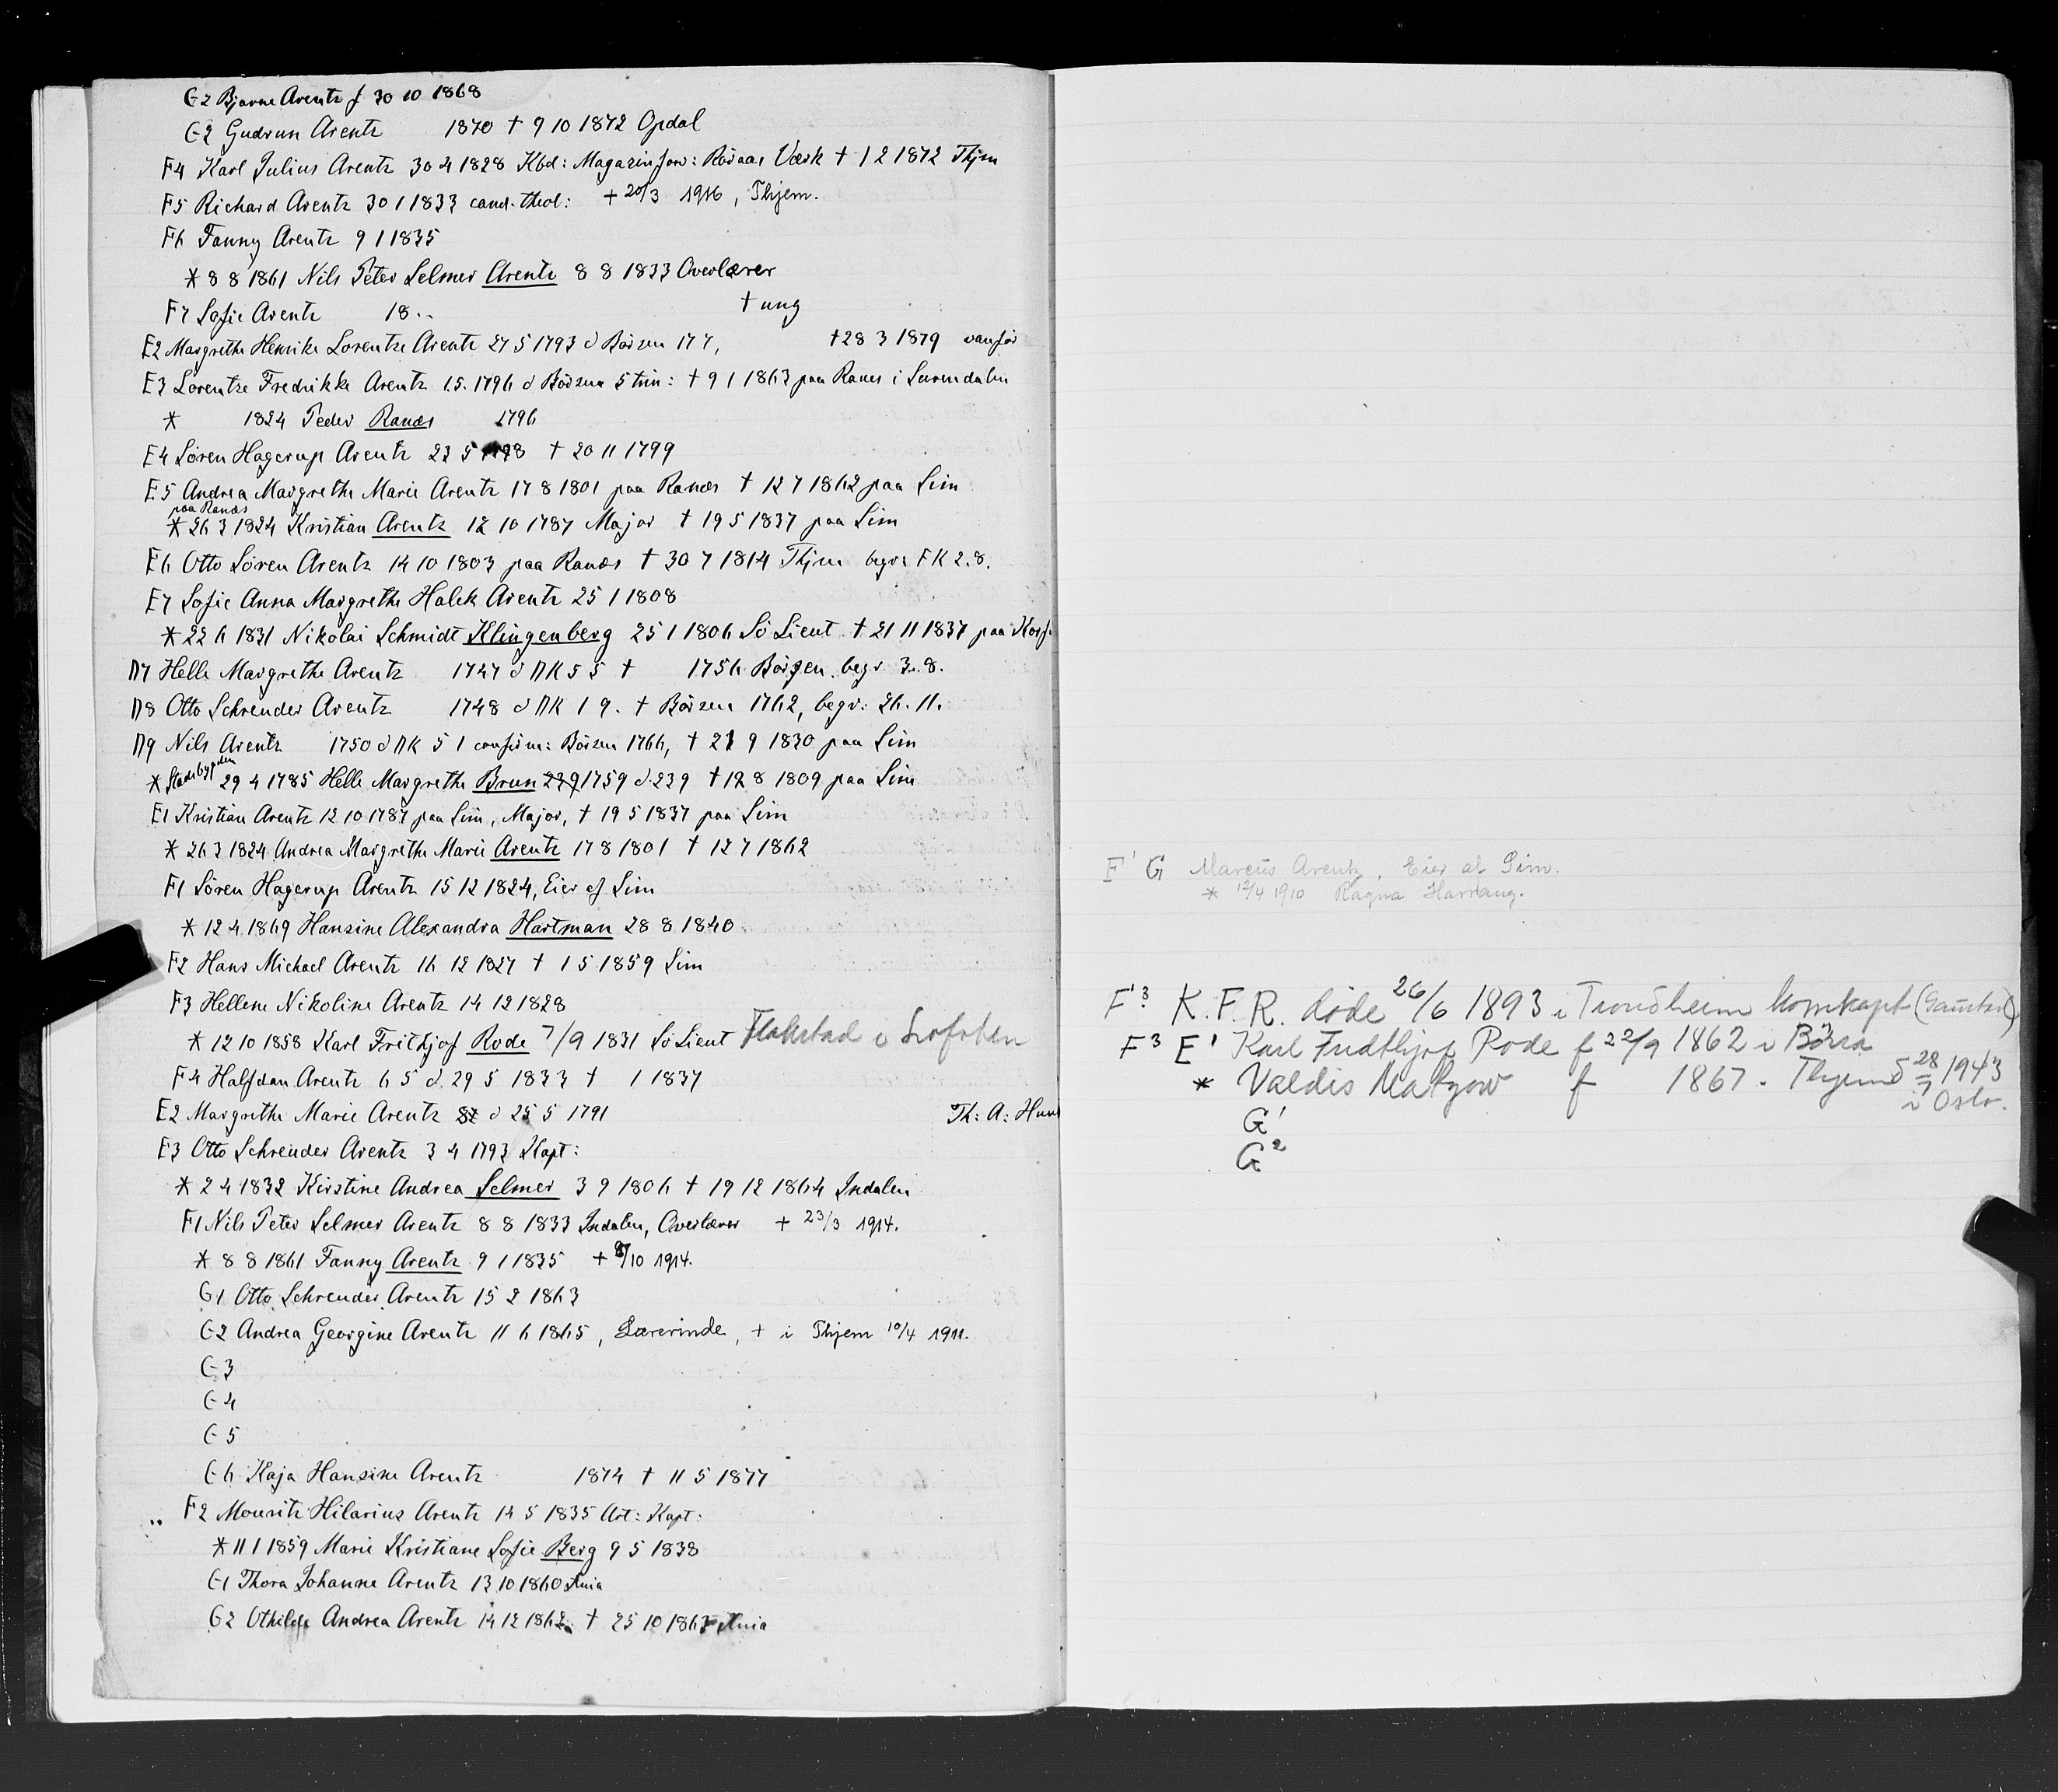 G2 Bjarne Arentz f 30 10 1868
G2 Gudrun Arentz 1870 † 9 10 1872 Opdal
F4 Karl Julius Arentz 30 4 1828 Kbd: Magazinforv: Röraas Værk † 1 2 1872 Thjm
F5 Richard Arentz 30 1 1833 cand. theol: + 20/3 1916, Thjem.
F6 Fanny Arentz 9 1 1835
* 8 8 1861 Nils Peter Selmer Arentz 8 8 1833 Overlærer
F7 Sofie Arentz 18.. † ung
E2 Margrethe Henrike Lorentze Arentz 27 5 1793 d Börsen 17 7, †28 3 1879 vanför
E3 Lorentze Fredrikke Arentz 1.5. 1796 d Börsen 5 trin: † 9 1 1863 paa Ranes i Surendalen
* 1824 Peder Ranæs 1796
E4 Sören Hagerup Arentz 23 5 1798 † 20 11 1799
E5 Andrea Margrethe Marie Arentz 17 8 1801 paa Ranæs † 12 7 1862 paa Lim
paa Ranæs
* 26 3 1824 Kristian Arentz 12 10 1787 Major † 19 5 1837 paa Lim
E6 Otto Sören Arentz 14 10 1803 paa Ranæs † 30 7 1814 Thjm begr: FK 2.8.
E7 Sofie Anna Margrethe Halck Arentz 25 1 1808
* 22 6 1831 Nikolai Schmidt Klingenberg 25 1 1806 Sö Lieut † 21 11 1837 paa
D7 Helle Margrethe Arentz 1747 d DK 5 5 † 1756 Börsen. begr 3.8.
D8 Otto Schreuder Arentz 1748 d DK 1 9. † Börsen 1762, begr: 26.11.
D9 Nils Arentz 1750 d DK 5 1 confirm: Börsen 1766, † 21 9 1830 paa Lim
* Stadsbygden 29 4 1785 Helle Margrethe Brun 22 9 1759 d 23 9 † 12 8 1809 paa Lim
E1 Kristian Arentz 12 10 1787 paa Lim, Major, † 19 5 1837 paa Lim
* 26 3 1824 Andrea Margrethe Marie Arentz 17 8 1801 † 12 7 1862
F1 Sören Hagerup Arentz 15 12 1824, Eier af Lim
* 12 4 1869 Hansine Alexandra Hartman 28 8 1840
F2 Hans Michael Arentz 16 12 1827 † 1 5 1859 Lim
F3 Hellene Nikoline Arentz 14 12 1828
* 12 10 1858 Karl Frithjof Rode 7/9 1831 Sö Lieut Flakstad i Lofoten
F4 Halfdan Arentz 6 5 d. 29 5 1833 † 1 1837
E2 Margrethe Marie Arentz d 25 5 1791 Th: A:
E3 Otto Schreuder Arentz 3 4 1793 Kapt:
* 2 4 1832 Kirstine Andrea Selmer 3 9 1806 † 19 12 1864 Indalen
F1 Nils Peter Selmer Arentz 8 8 1833 Indalen, Overlærer + 23/3 1914.
* 8 8 1861 Fanny Arentz 9 1 1835 + /10 1914.
G1 Otto Schreuder Arentz 15 2 1863
G2 Andrea Georgine Arentz 11 6 1865, Lærerinde, + i Thjem 10/4 1911.
G3
G4
G5
G6 Kaja Hansine Arentz 1874 † 11 5 1877
F2 Mouritz Hilarius Arentz 14 5 1835 Art: Kapt:
* 11 1 1859 Marie Kristiane Sofie Berg 9 5 1838
G1 Thora Johanne Arentz 13 10 1860 Xnia
G2 Othilde Andrea Arentz 14 12 1862 † 25 10 1863 Xnia
F1 G Marcus Arentz, Eier af Lim.
* 12/4 1910 Ragna Harrang.
F'3 K.F.R. døde 26/6 1893 i Trondheim komkapt
F3 E1 Karl Fridthjof Rode f 22/9 1862 i Börsa
* Valdis Matzow f 1867. Thjem d 28/7 1943
i Oslo.
G1
G2